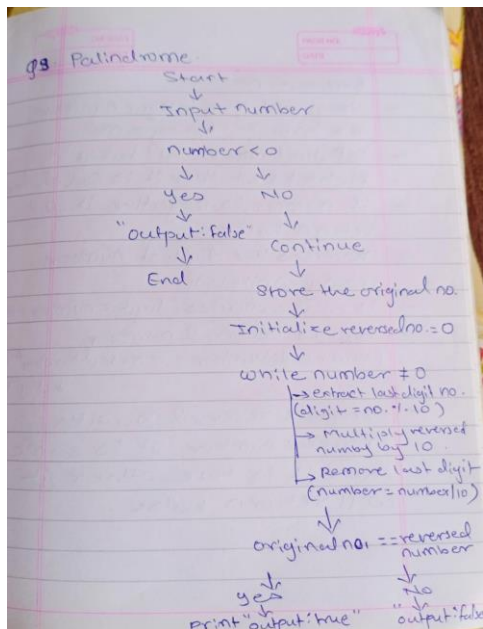 Q9. Palindrome.
Start
↓
Input number
↓
number < 0
↓ ↓
Yes NO
↓ ↓
"output: false" Continue
↓ ↓
End Store the original no.
↓
Initialize reversed no. = 0
↓
while number ≠ 0
→ extract last digit no.
(digit = no. % 10)
→ Multiply reversed
numby by 10
→ Remove last digit
(number = number/10)
↓
original no. == reversed
number
↓ ↓
Yes No
↓ ↓
print "output: true" "output: false